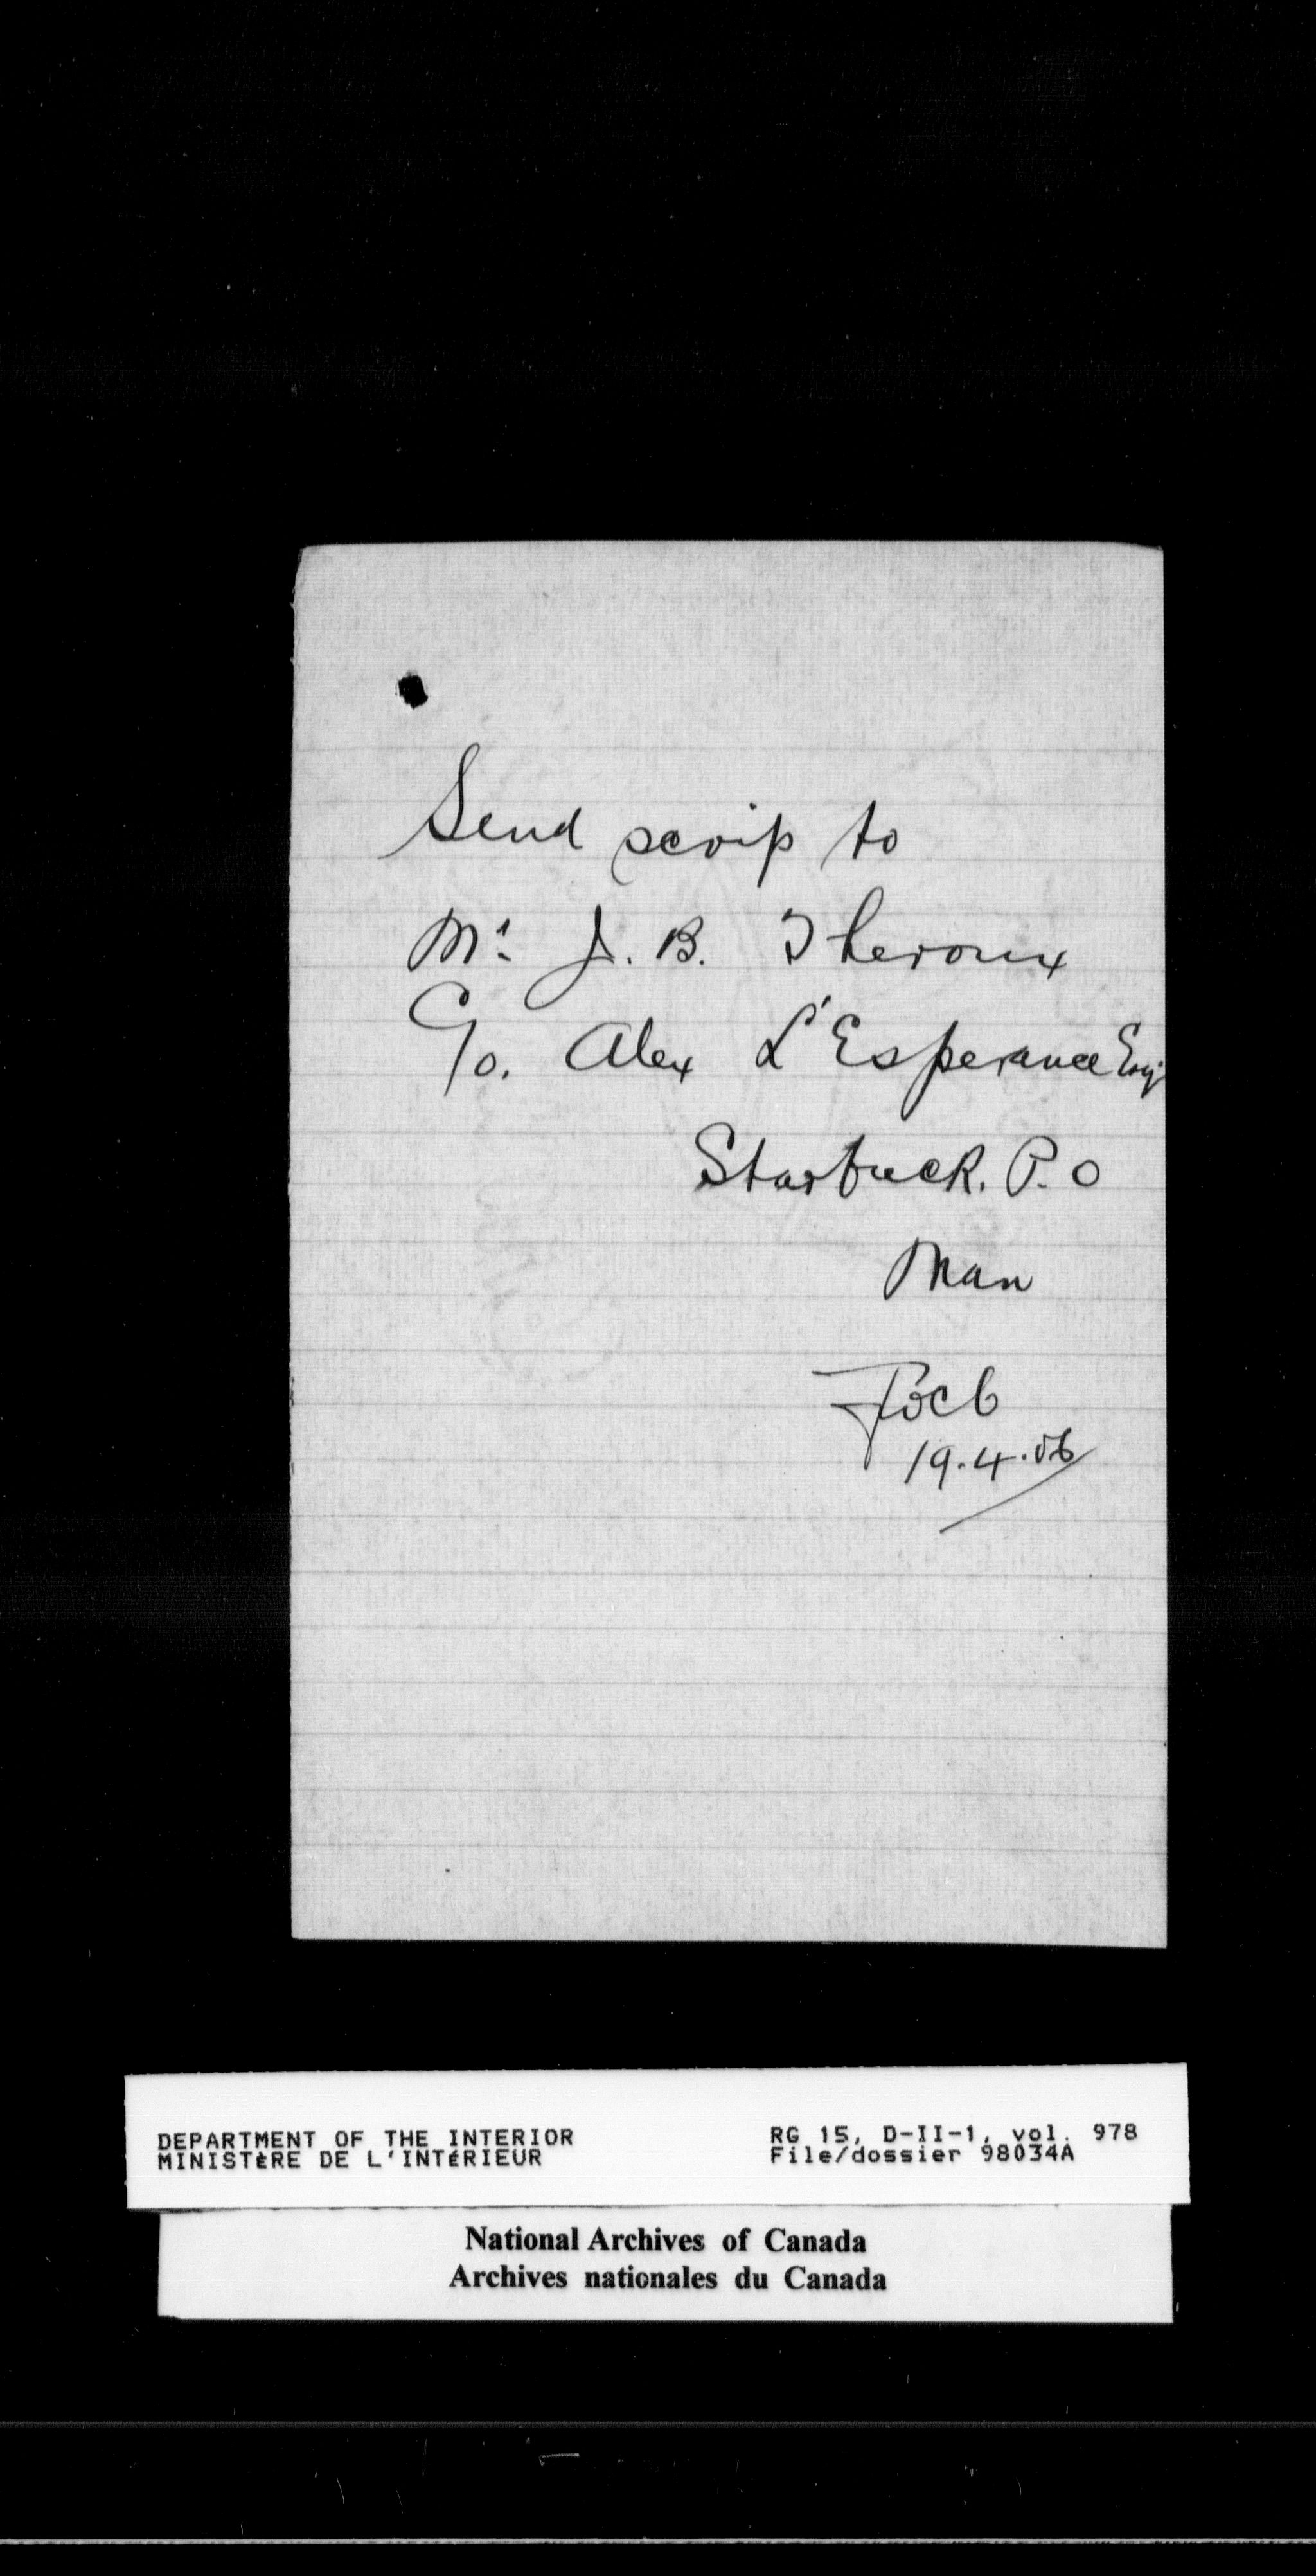 Send scrip to
Mr. J. B. Theroux
C/o. Alex L'Esperance Esq
Starbuck. P.O
Man
19.4.06
DEPARTMENT OF THE INTERIOR
MINISTÈRE DE L'INTÉRIEUR
RG 15, D-II-1, vol. 978
File/dossier 98034A
National Archives of Canada
Archives nationales du Canada